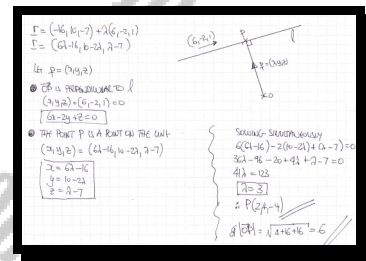 r = (-16,10,-7) + λ(6,-2,1)
r = (6λ-16, 10-2λ, λ-7)
Let P = (x,y,z)
• OP IS PERPENDICULAR TO l
(x,y,z)·(6,-2,1) = 0
6x-2y+z=0
• THE POINT P IS A POINT ON THE LINE
(x,y,z) = (6λ-16, 10-2λ, λ-7)
x = 6λ-16
y = 10-2λ
z = λ-7
(6,-2,1)
P
l
p=(x,y,z)
O
SOLVING SIMULTANEOUSLY
6(6λ-16) -2(10-2λ) + (λ-7) = 0
36λ - 96 - 20 + 4λ + λ - 7 = 0
41λ = 123
λ = 3
∴ P(2,4,-4)
|OP| = √4+16+16 = 6